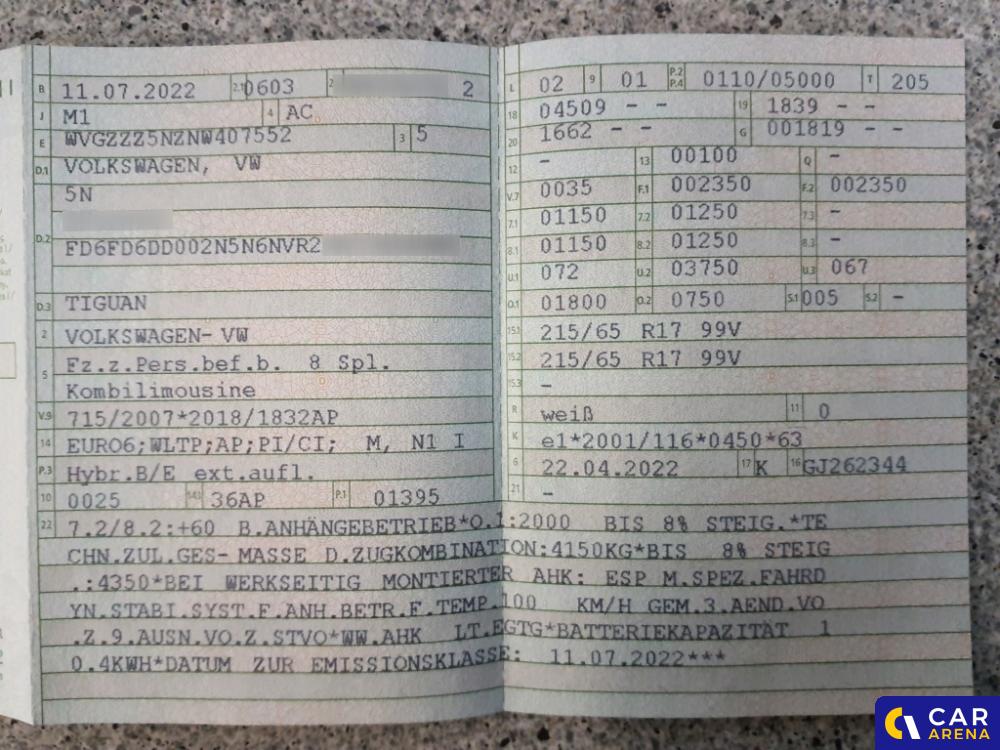 B 11.07.2022 2.1 0603 2 2
J M1 4 AC
E WVGZZZ5NZNW407552 3 5
D.1 VOLKSWAGEN, VW
5N
D.2
FD6FD6DD002N5N6NVR2
D.3 TIGUAN
2 VOLKSWAGEN-VW
5 Fz.z.Pers.bef.b. 8 Spl.
Kombilimousine
V.9 715/2007*2018/1832AP
14 EURO6;WLTP;AP;PI/CI; M, N1 I
P.3 Hybr.B/E ext.aufl.
10 0025 14.1 36AP P.1 01395
L 02 9 01 P.2 P.4 0110/05000 T 205
18 04509 - - 19 1839 - -
20 1662 - - G 001819 - -
12 - 13 00100 Q -
V.7 0035 F.1 002350 F.2 002350
7.1 01150 7.2 01250 7.3 -
8.1 01150 8.2 01250 8.3 -
U.1 072 U.2 03750 U.3 067
O.1 01800 O.2 0750 S.1 005 S.2 -
15.1 215/65 R17 99V
15.2 215/65 R17 99V
15.3 -
R weiß 11 0
K e1*2001/116*0450*63
6 22.04.2022 17 K 16 GJ262344
21 -
22 7.2/8.2:+60 B.ANHÄNGEBETRIEB*O.1:2000 BIS 8% STEIG.*TE
CHN.ZUL.GES-MASSE D.ZUGKOMBINATION:4150KG*BIS 8% STEIG
.:4350*BEI WERKSEITIG MONTIERTER AHK: ESP M.SPEZ.FAHRD
YN.STABI.SYST.F.ANH.BETR.F.TEMP.100 KM/H GEM.3.AEND.VO
.Z.9.AUSN.VO.Z.STVO*WW.AHK LT.EGTG*BATTERIEKAPAZITÄT 1
0.4KWH*DATUM ZUR EMISSIONSKLASSE: 11.07.2022***
CAR
ARENA